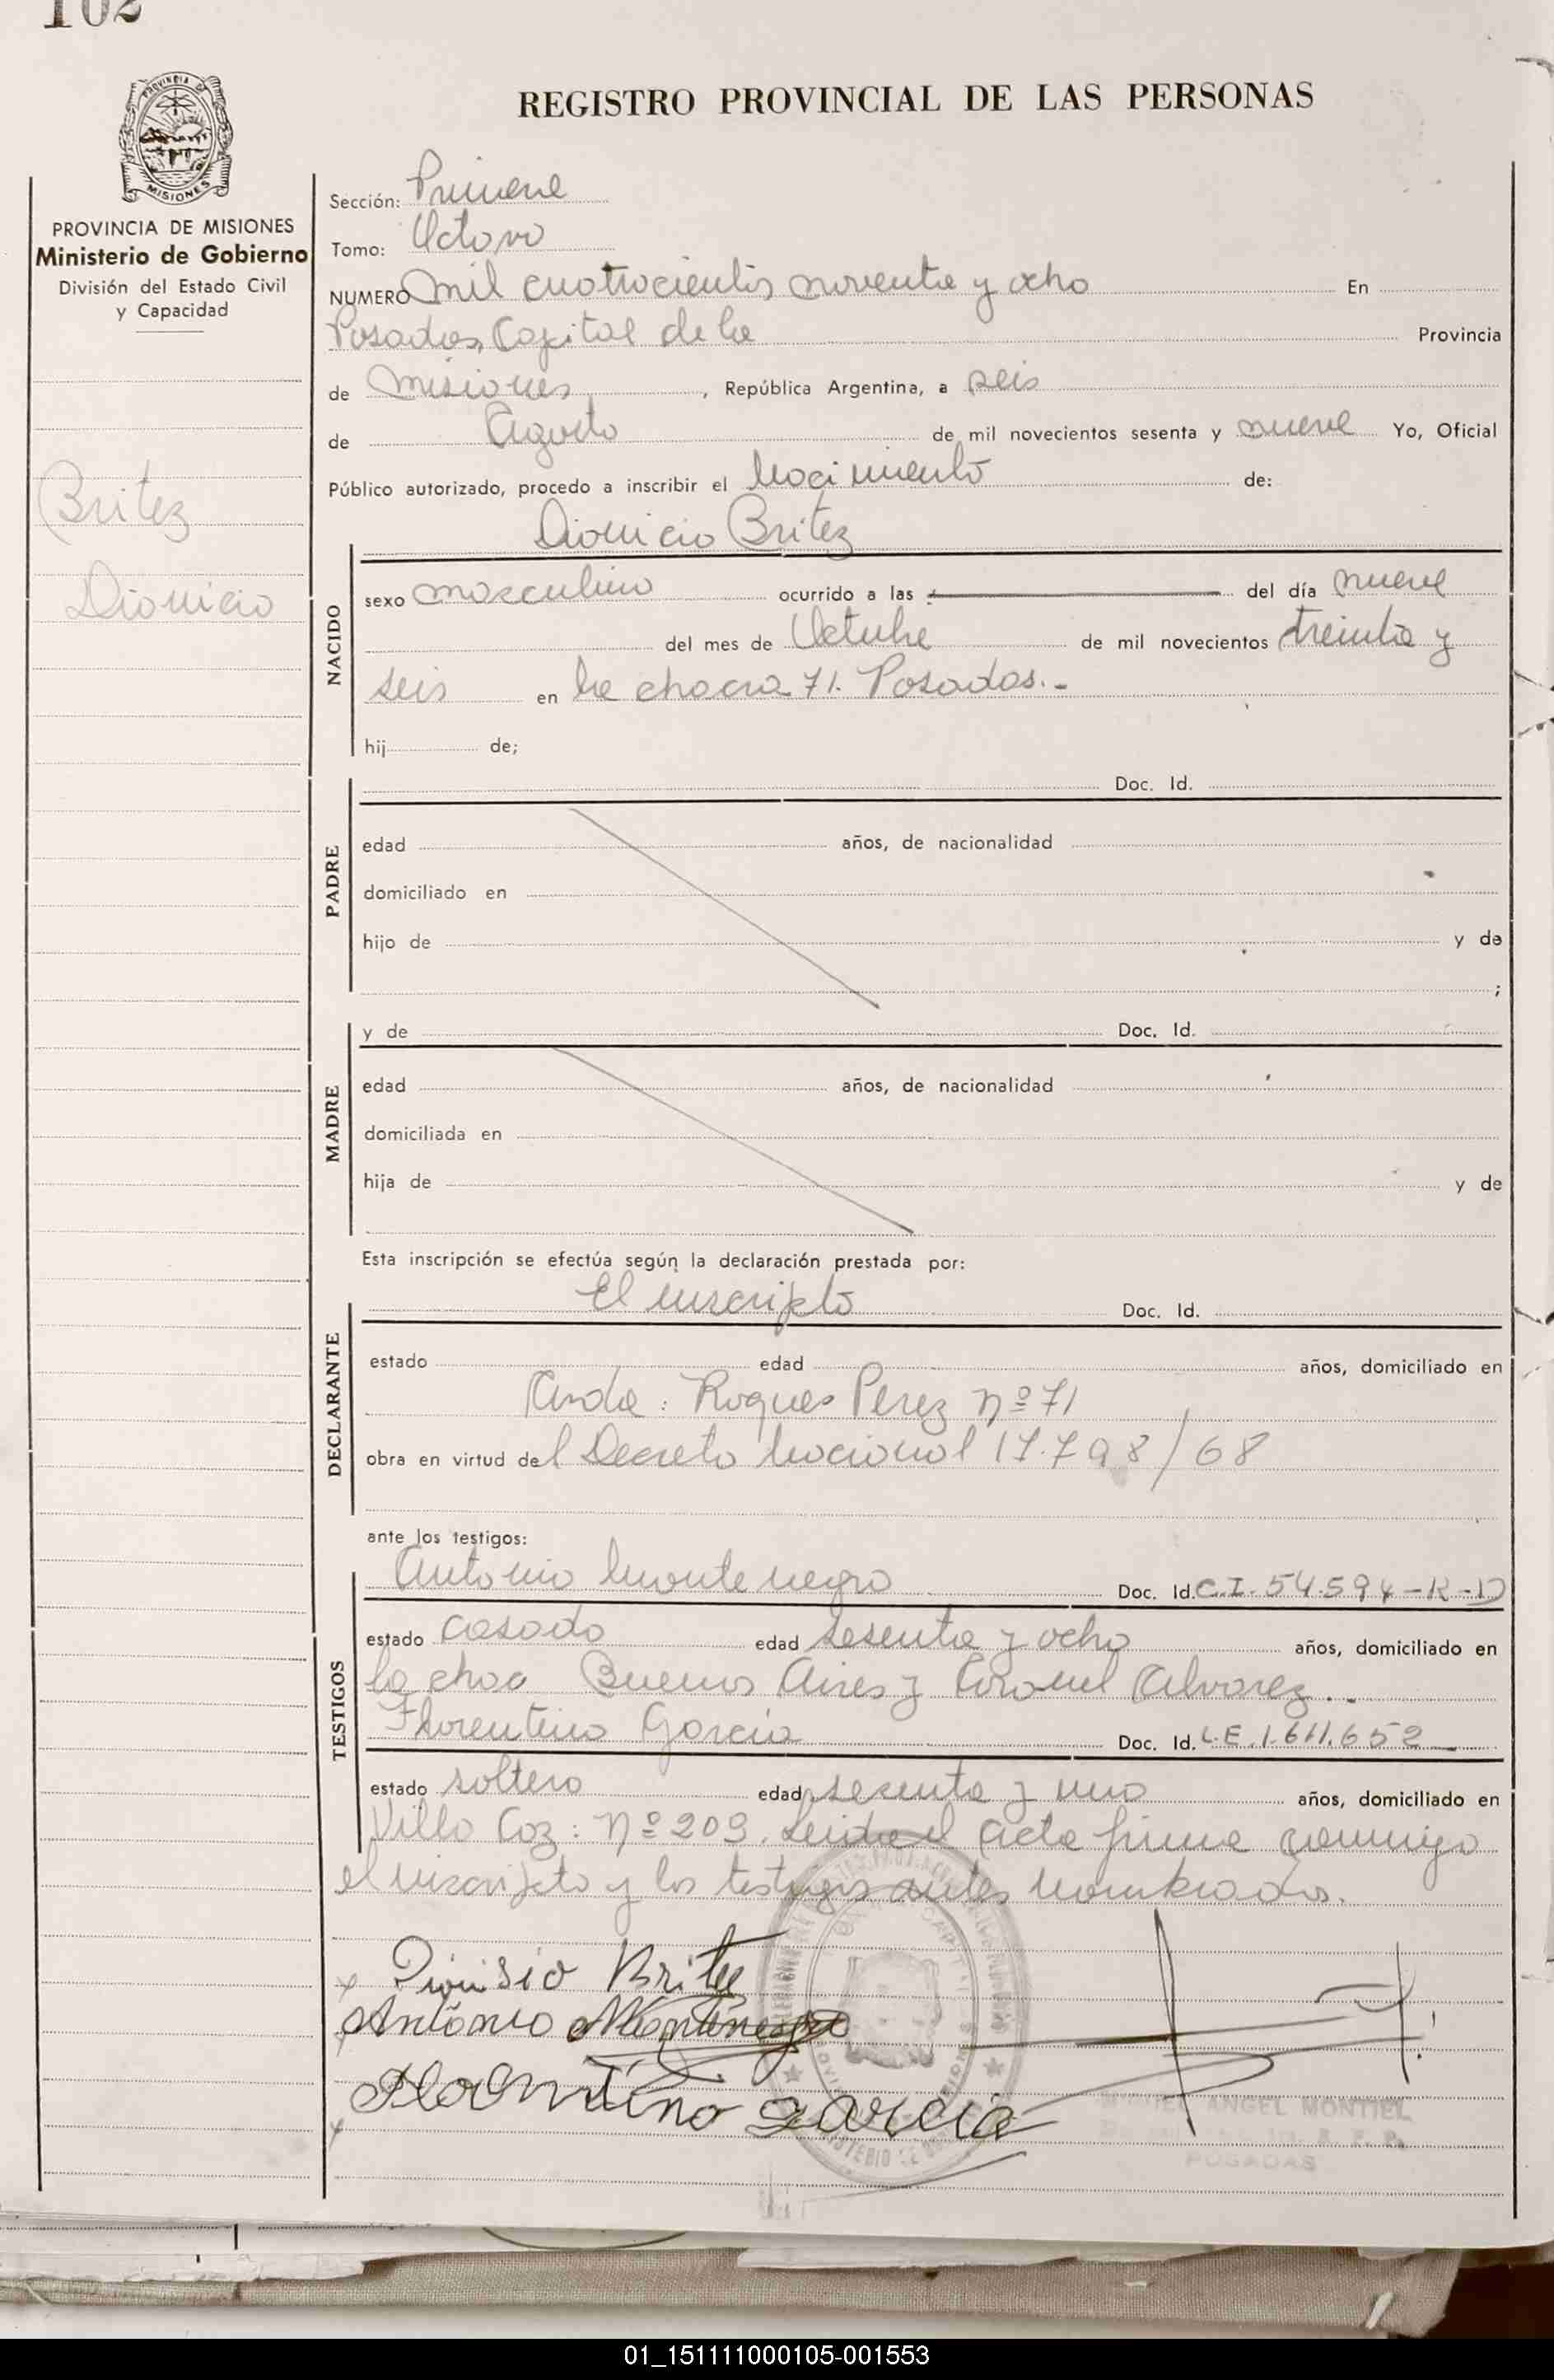 102
REGISTRO PROVINCIAL DE LAS PERSONAS
PROVINCIA DE
MISIONES
PROVINCIA DE MISIONES
Ministerio de Gobierno
División del Estado Civil
y Capacidad
Britez
Dionicio
Sección: Primera
Tomo: Octavo
NUMERO mil cuatrocientos noventa y ocho En
Posadas, Capital de la Provincia
de Misiones, República Argentina, a seis
de Agosto de mil novecientos sesenta y nueve Yo, Oficial
Público autorizado, procedo a inscribir el Nacimiento de:
Dionicio Britez
NACIDO
sexo masculino ocurrido a las del día nueve
del mes de Octubre de mil novecientos treinta y
seis en la chacra 71. Posadas.-
hij de;
PADRE
Doc. Id.
edad años, de nacionalidad
domiciliado en
hijo de y de
;
MADRE
y de Doc. Id.
edad años, de nacionalidad
domiciliada en
hija de y de
Esta inscripción se efectúa según la declaración prestada por:
DECLARANTE
El inscripto Doc. Id.
estado edad años, domiciliado en
Avda: Roques Perez nº 71
obra en virtud del Decreto Nacional 17.798/68
ante los testigos:
TESTIGOS
Antonio Montenegro Doc. Id. C.I. 54.594-R-D
estado casado edad sesenta y ocho años, domiciliado en
la chac Buenos Aires y Coronel Alvarez..
Florentino Garcia Doc. Id. L.E. 1.611.652
estado soltero edad sesenta y uno años, domiciliado en
Villa Coz: nº 209. Leida el Acta firma conmigo
el inscripto y los testigos antes nombrados.
x Dionisio Britez
Antonio Montenegro
Florentino Garcia
x
MIGUEL ANGEL MONTIEL
POSADAS
01_151111000105-001553